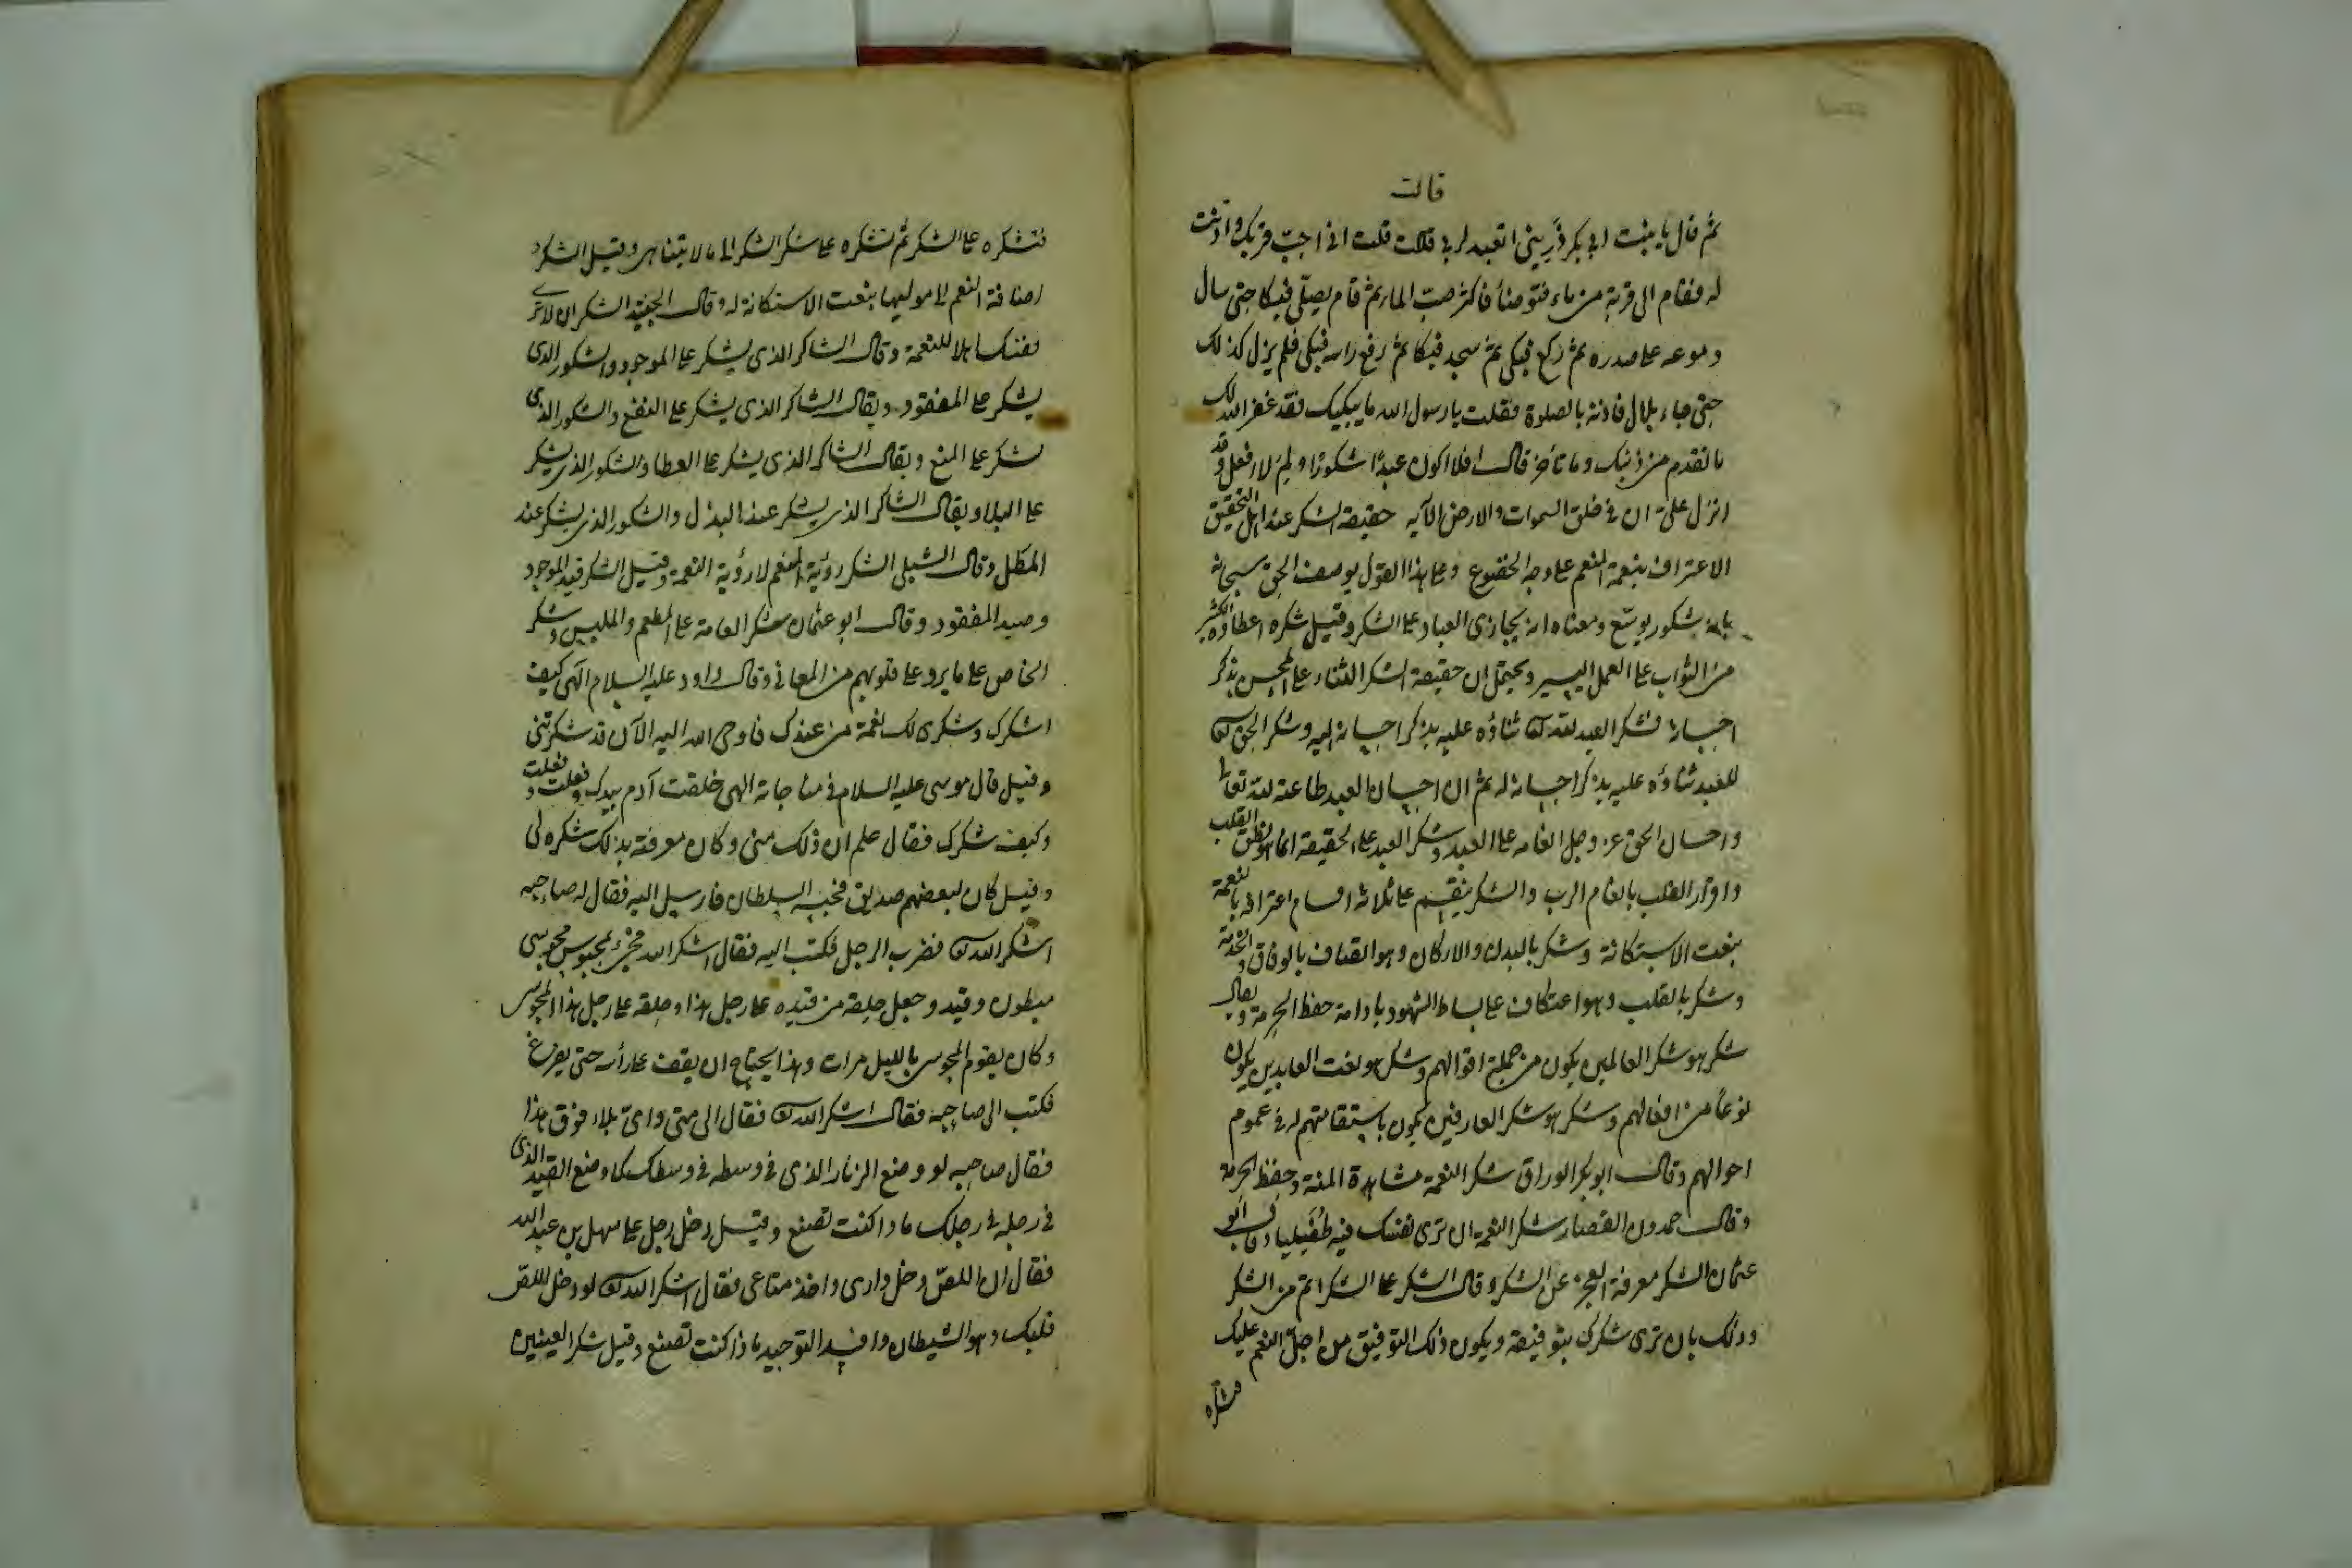 قالت
ثم قال يا بنت ابي بكر ذريني اتعبد لربي قالت قلت اني احب قربك واذنت
له فقام الى قربة من ماء فتوضأ فاكثر صب الماء ثم قام يصلي فبكا حتى سال
دموعه على صدره ثم ركع فبكى ثم سجد فبكا ثم رفع راسه فبكى فلم يزل كذلك
حتى جاء بلال فاذنه بالصلوة فقلت يا رسول الله ما يبكيك فقد غفر الله لك
ما تقدم من ذنبك وما تأخر قال افلا اكون عبدًا شكورًا ولم لا افعل وقد
انزل علي ان في خلق السموات والارض الآيه حقيقة الشكر عند اهل التحقيق
الاعتراف بنعمة المنعم على وجه الخضوع وعلى هذا القول يوصف الحق سبحانه
بانه شكور توسع ومعناه انه يجازى العباد على الشكر وقيل شكره اعطاؤه الكثير
من الثواب على العمل اليسير ويحتمل ان حقيقة الشكر الثناء على المحسن بذكر
احسانه فشكر العبد لله تعالى ثناؤه عليه بذكر احسانه اليه وشكر الحق تعالى
للعبد ثناؤه عليه بذكر احسانه له ثم ان احسان العبد طاعته لله تعالى
واحسان الحق عز وجل انعامه على العبد وشكر العبد على الحقيقة انما هو نطق القلب
واقرار القلب بانعام الرب والشكر ينقسم على ثلاثة اقسام اعترافه بالنعمة
بنعت الاستكانة وشكر بالبدن والاركان وهو اتصاف بالوفاق والخدمة
وشكر بالقلب وهو اعتكاف على بساط الشهود بادامة حفظ الحرمة ويقال
شكر هو شكر العالمين يكون من جملة اقوالهم وشكر هو نعت العابدين يكون
نوعاً من افعالهم وشكر هو شكر العارفين يكون باستقامتهم له في عموم
احوالهم وقال ابو بكر الوراق شكر النعمة مشاهدة المنة وحفظ الحرمة
وقال حمدون القصار شكر النعمة ان ترى نفسك فيه طُفَيليا وقال ابو
عثمان الشكر معرفة العجز عن الشكر وقال الشكر على الشكر اتم من الشكر
وذلك بان ترى شكرك بتوفيقه ويكون ذلك التوفيق من اجلّ النعم عليك
فتشكره
فتشكره على الشكر ثم تشكره على شكر الشكر الى ما لا يتناهى وقيل الشكر
اضافة النعم الى موليها بنعت الاستكانة له وقال الجنيد الشكر ان لا ترى
نفسك اهلا للنعمة وقال الشاكر الذى يشكر على الموجود والشكور الذى
يشكر على المفقود ويقال الشاكر الذى يشكر على النفع والشكور الذى
يشكر على المنع ويقال الشاكر الذى يشكر على العطا والشكور الذى يشكر
على البلا ويقال الشاكر الذى يشكر عند البذل والشكور الذى يشكر عند
المطل وقال الشبلى الشكر رؤية المنعم لا رؤية النعمة وقيل الشكر قيد الموجود
وصيد المفقود وقال ابو عثمان شكر العامة على المطعم والملبس وشكر
الخاص على ما يرد على قلوبهم من المعاني وقال داود عليه السلام الهى كيف
اشكرك وشكرى لك نعمة من عندك فاوحى الله اليه الآن قد شكرتنى
وقيل قال موسى عليه السلام في مناجاته الهى خلقت آدم بيدك وفعلت وفعلت
وكيف شكرك فقال علم ان ذلك منى وكان معرفته بذلك شكره لى
وقيل كان لبعضهم صديق فحبسه السلطان فارسل اليه فقال له صاحبه
اشكر الله تعالى فضرب الرجل فكتب اليه فقال اشكر الله فجئ بمحبوس مجوسى
مبطون وقيد وجعل حلقة من قيده على رجل هذا وحلقة على رجل هذا المجوسى
وكان يقوم المجوسى بالليل مرات وهذا يحتاج ان يقف على رأسه حتى يفرغ
فكتب الى صاحبه فقال اشكر الله تعالى فقال الى متى واى بلاء فوق هذا
فقال صاحبه لو وضع الزنار الذى في وسطه في وسطك كما وضع القيد الذى
في رجله في رجلك ماذا كنت تصنع وقيل دخل رجل على سهل بن عبد الله
فقال ان اللص دخل دارى واخذ متاعى فقال اشكر الله تعالى لو دخل اللص
قلبك وهو الشيطان وافسد التوحيد ماذا كنت تصنع وقيل شكر العينين